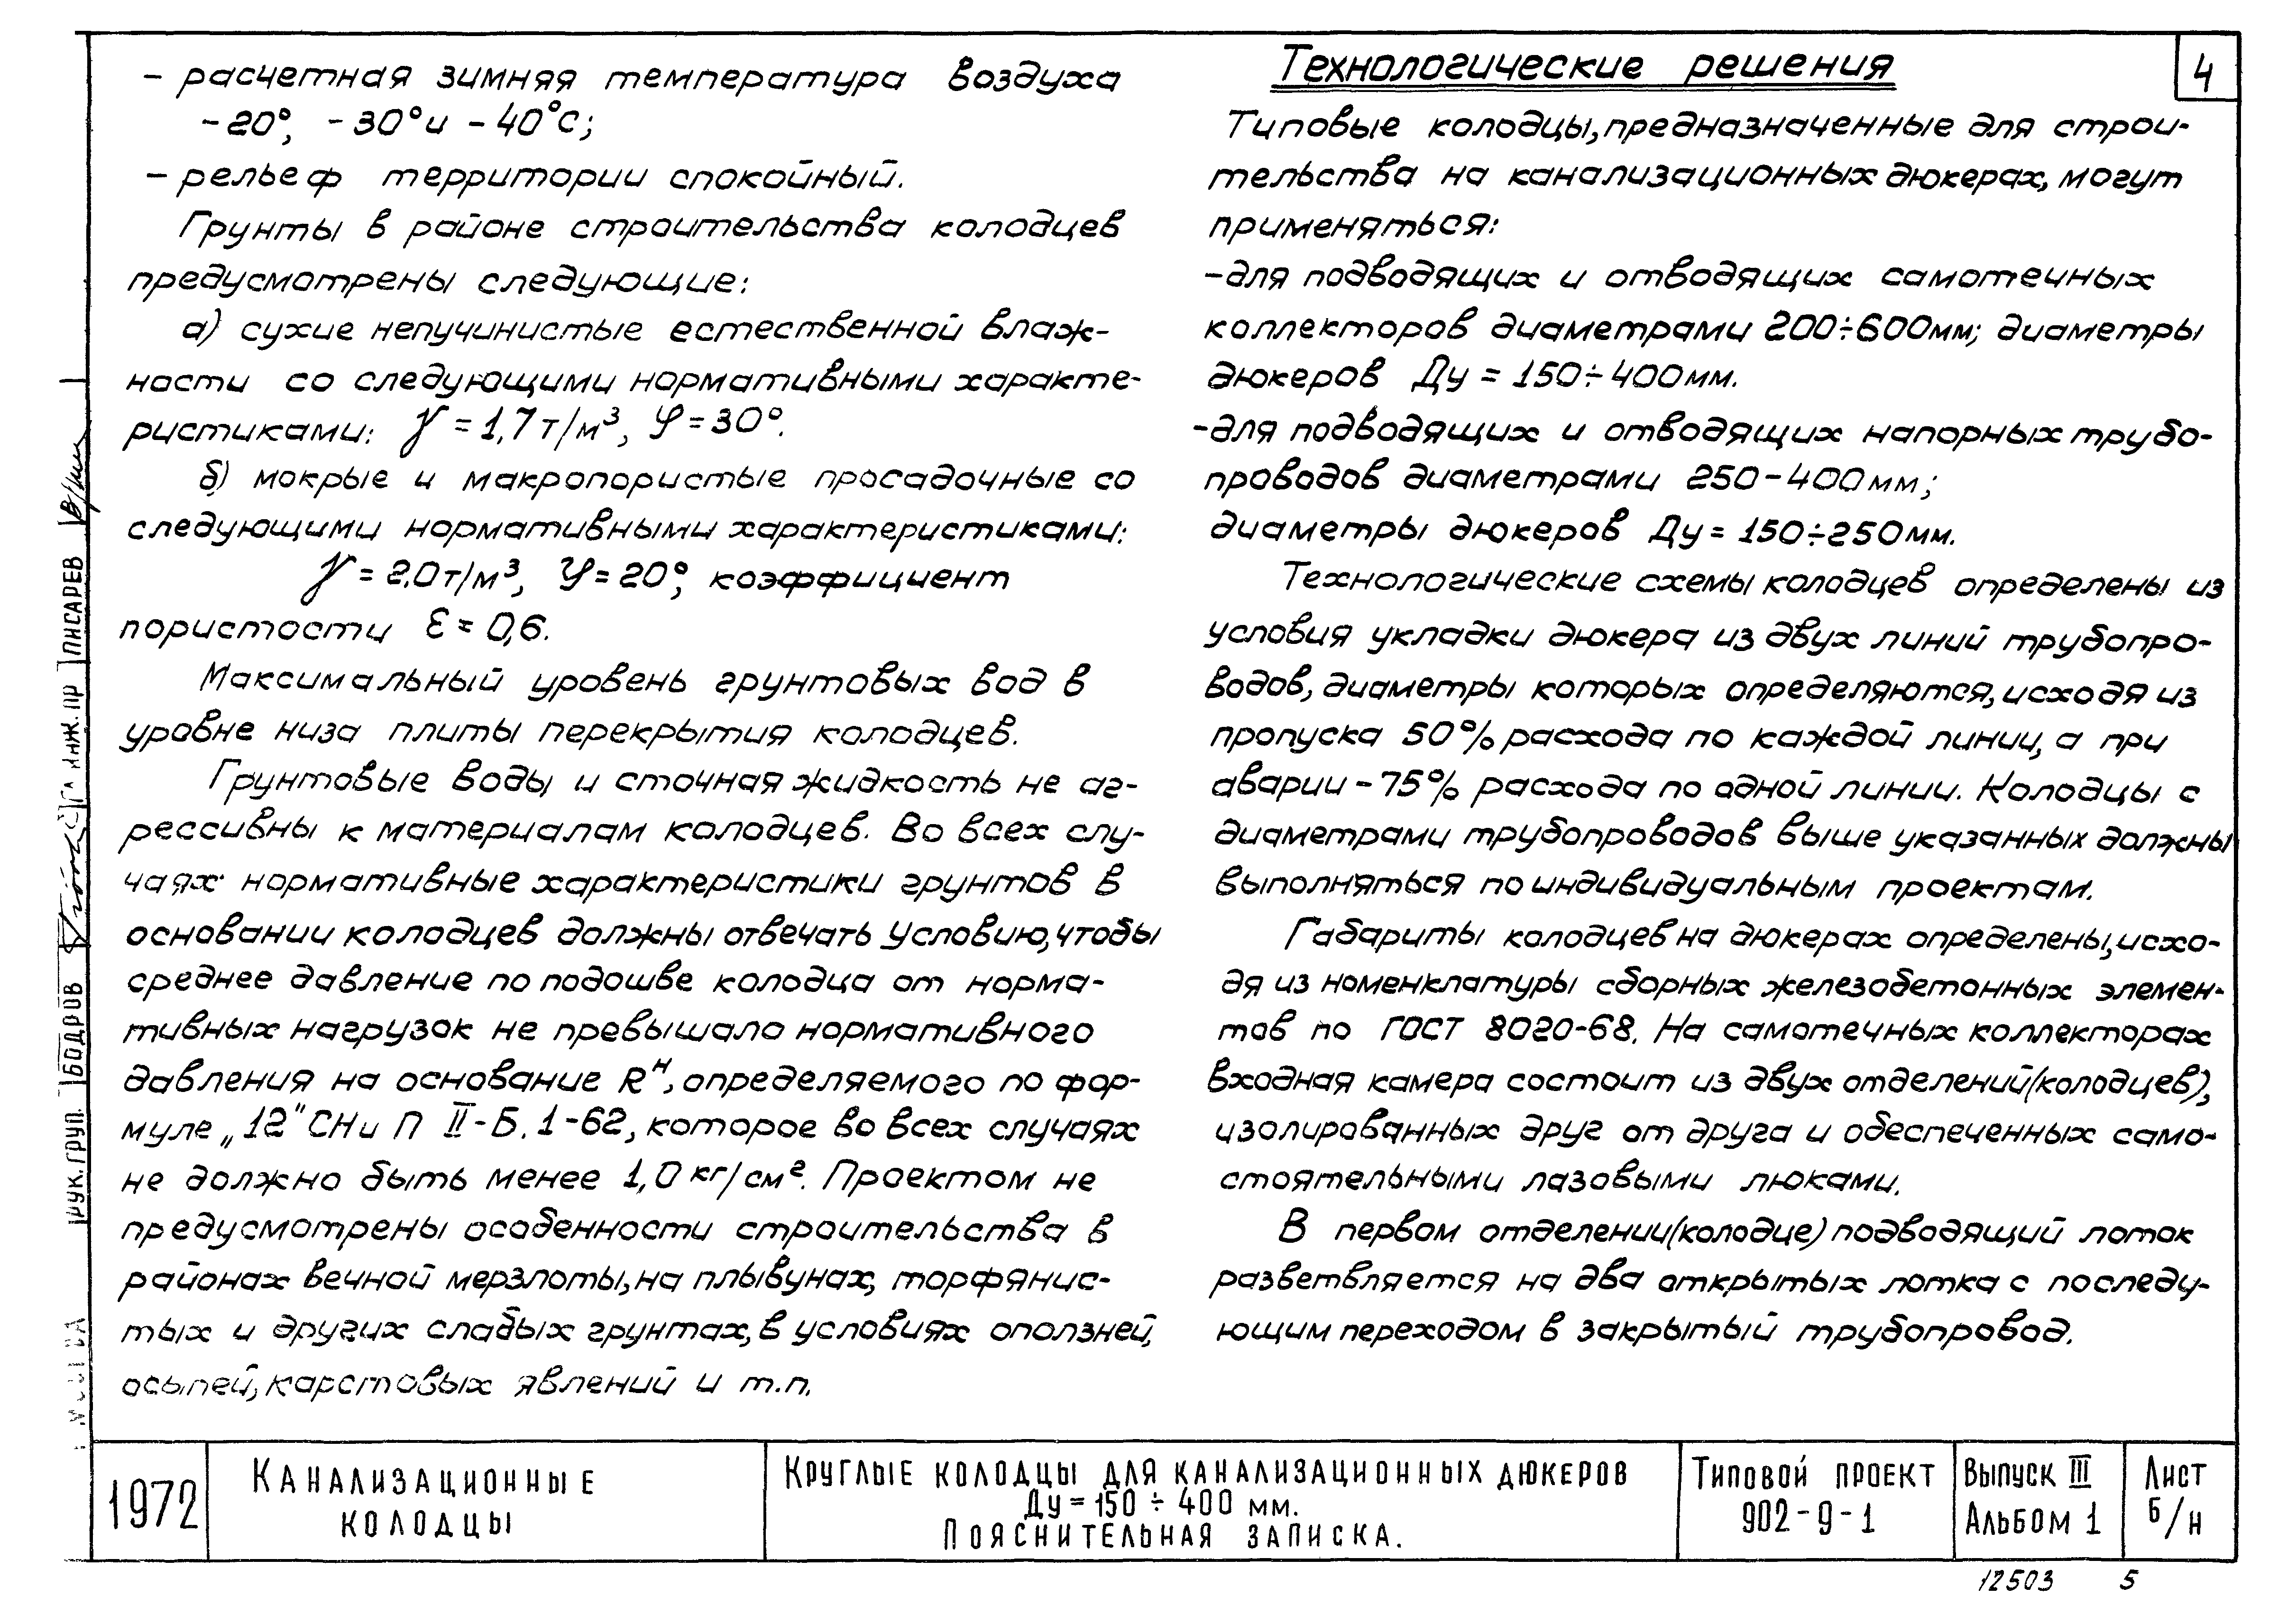 – расчетная зимняя температура воздуха
–20°, –30° и –40°С;
– рельеф территории спокойный.
Грунты в районе строительства колодцев
предусмотрены следующие:
а) сухие непучинистые естественной влаж-
ности со следующими нормативными характе-
ристиками: γ = 1,7 т/м³, φ = 30°.
б) мокрые и макропористые просадочные со
следующими нормативными характеристиками:
γ = 2,0 т/м³, φ = 20°, коэффициент
пористости ε = 0,6.
Максимальный уровень грунтовых вод в
уровне низа плиты перекрытия колодцев.
Грунтовые воды и сточная жидкость не аг-
рессивны к материалам колодцев. Во всех слу-
чаях нормативные характеристики грунтов в
основании колодцев должны отвечать условию, чтобы
среднее давление по подошве колодца от норма-
тивных нагрузок не превышало нормативного
давления на основание Rᴴ, определяемого по фор-
муле „12" СНиП II-Б.1-62, которое во всех случаях
не должно быть менее 1,0 кг/см². Проектом не
предусмотрены особенности строительства в
районах вечной мерзлоты, на плывунах, торфянис-
тых и других слабых грунтах, в условиях оползней,
осыпей, карстовых явлений и т.п.
Технологические решения
4
Типовые колодцы, предназначенные для строи-
тельства на канализационных дюкерах, могут
применяться:
–для подводящих и отводящих самотечных
коллекторов диаметрами 200÷600мм; диаметры
дюкеров Ду = 150÷400мм.
–для подводящих и отводящих напорных трубо-
проводов диаметрами 250–400мм;
диаметры дюкеров Ду = 150÷250мм.
Технологические схемы колодцев определены из
условия укладки дюкера из двух линий трубопро-
водов, диаметры которых определяются, исходя из
пропуска 50% расхода по каждой линии, а при
аварии – 75% расхода по одной линии. Колодцы с
диаметрами трубопроводов выше указанных должны
выполняться по индивидуальным проектам.
Габариты колодцев на дюкерах определены, исхо-
дя из номенклатуры сборных железобетонных элемен-
тов по ГОСТ 8020-68. На самотечных коллекторах
входная камера состоит из двух отделений (колодцев),
изолированных друг от друга и обеспеченных само-
стоятельными лазовыми люками.
В первом отделении (колодце) подводящий лоток
разветвляется на два открытых лотка с последу-
ющим переходом в закрытый трубопровод.
Гл. инж. пр Писарев
Рук. груп. Бодров
1972
Канализационные
колодцы
Круглые колодцы для канализационных дюкеров
Ду = 150 ÷ 400 мм.
Пояснительная записка.
Типовой проект
902-9-1
Выпуск III
Альбом 1
Лист
Б/н
12503 5